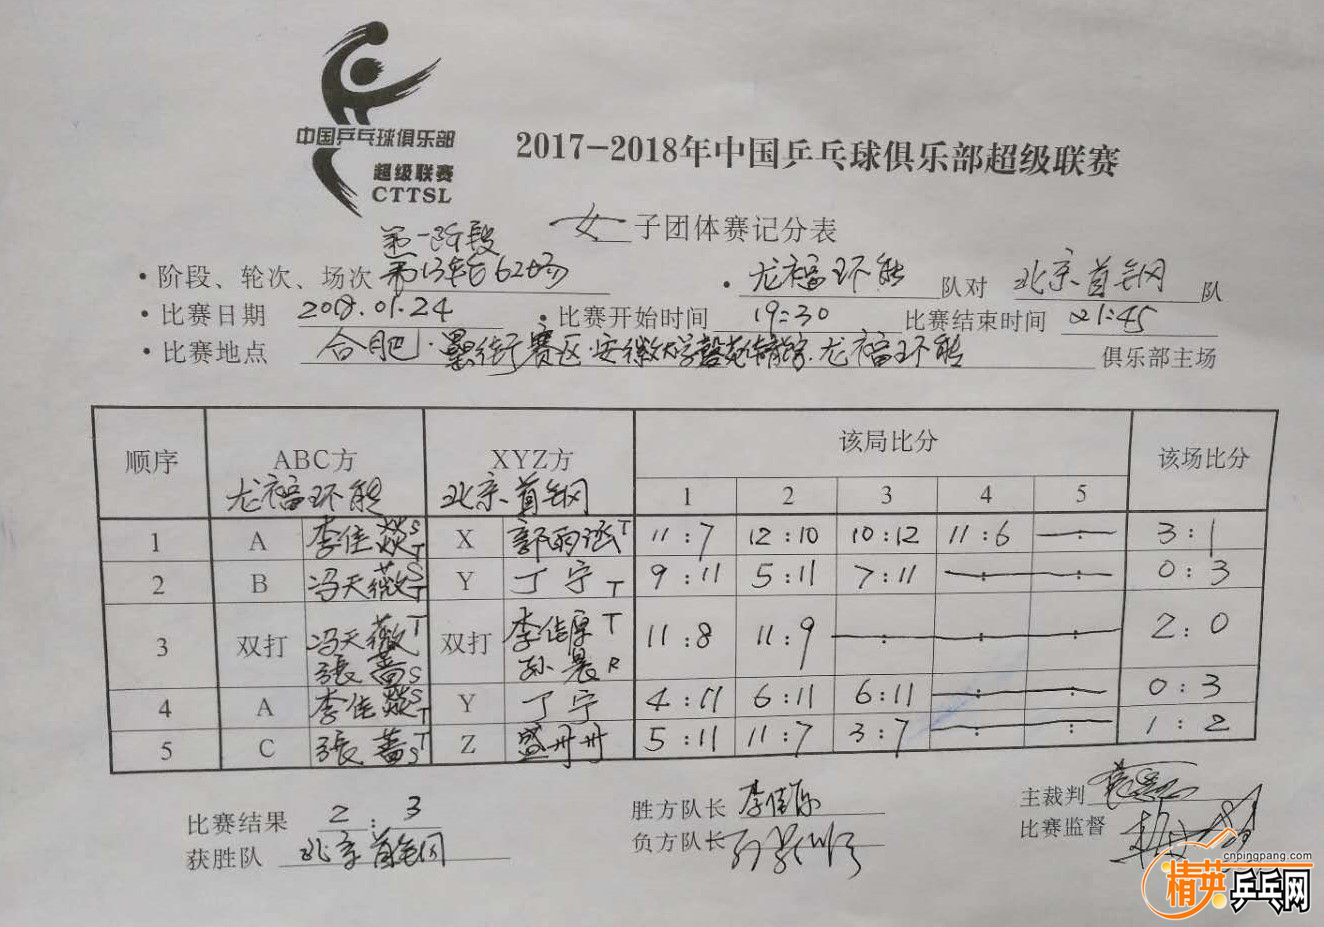 中国乒乓球俱乐部
超级联赛
CTTSL
2017-2018年中国乒乓球俱乐部超级联赛
女子团体赛记分表
第一阶段
·阶段、轮次、场次 第13轮 62场 · 龙福环能 队对 北京首钢 队
·比赛日期 2018.01.24 ·比赛开始时间 19:30 比赛结束时间 21:45
·比赛地点 合肥·赛区·安徽大学磬苑体育馆·龙福环能 俱乐部主场
顺序 ABC方 龙福环能 XYZ方 北京首钢 该局比分 该场比分
1 2 3 4 5
1 A 李佳燚 S T X 郭雨涵 T 11:7 12:10 10:12 11:6 : 3:1
2 B 冯天薇 S T Y 丁宁 T 9:11 5:11 7:11 : : 0:3
3 双打 冯天薇 T 張蔷 S 双打 李佳原 T 孙晨 R 11:8 11:9 : : : 2:0
4 A 李佳燚 S T Y 丁宁 4:11 6:11 6:11 : : 0:3
5 C 張蔷 T S Z 盛丹丹 5:11 11:7 3:7 : : 1:2
比赛结果 2:3 胜方队长 李佳原 主裁判
获胜队 北京首钢 负方队长 比赛监督
cnpingpang.com
精英乒乓网